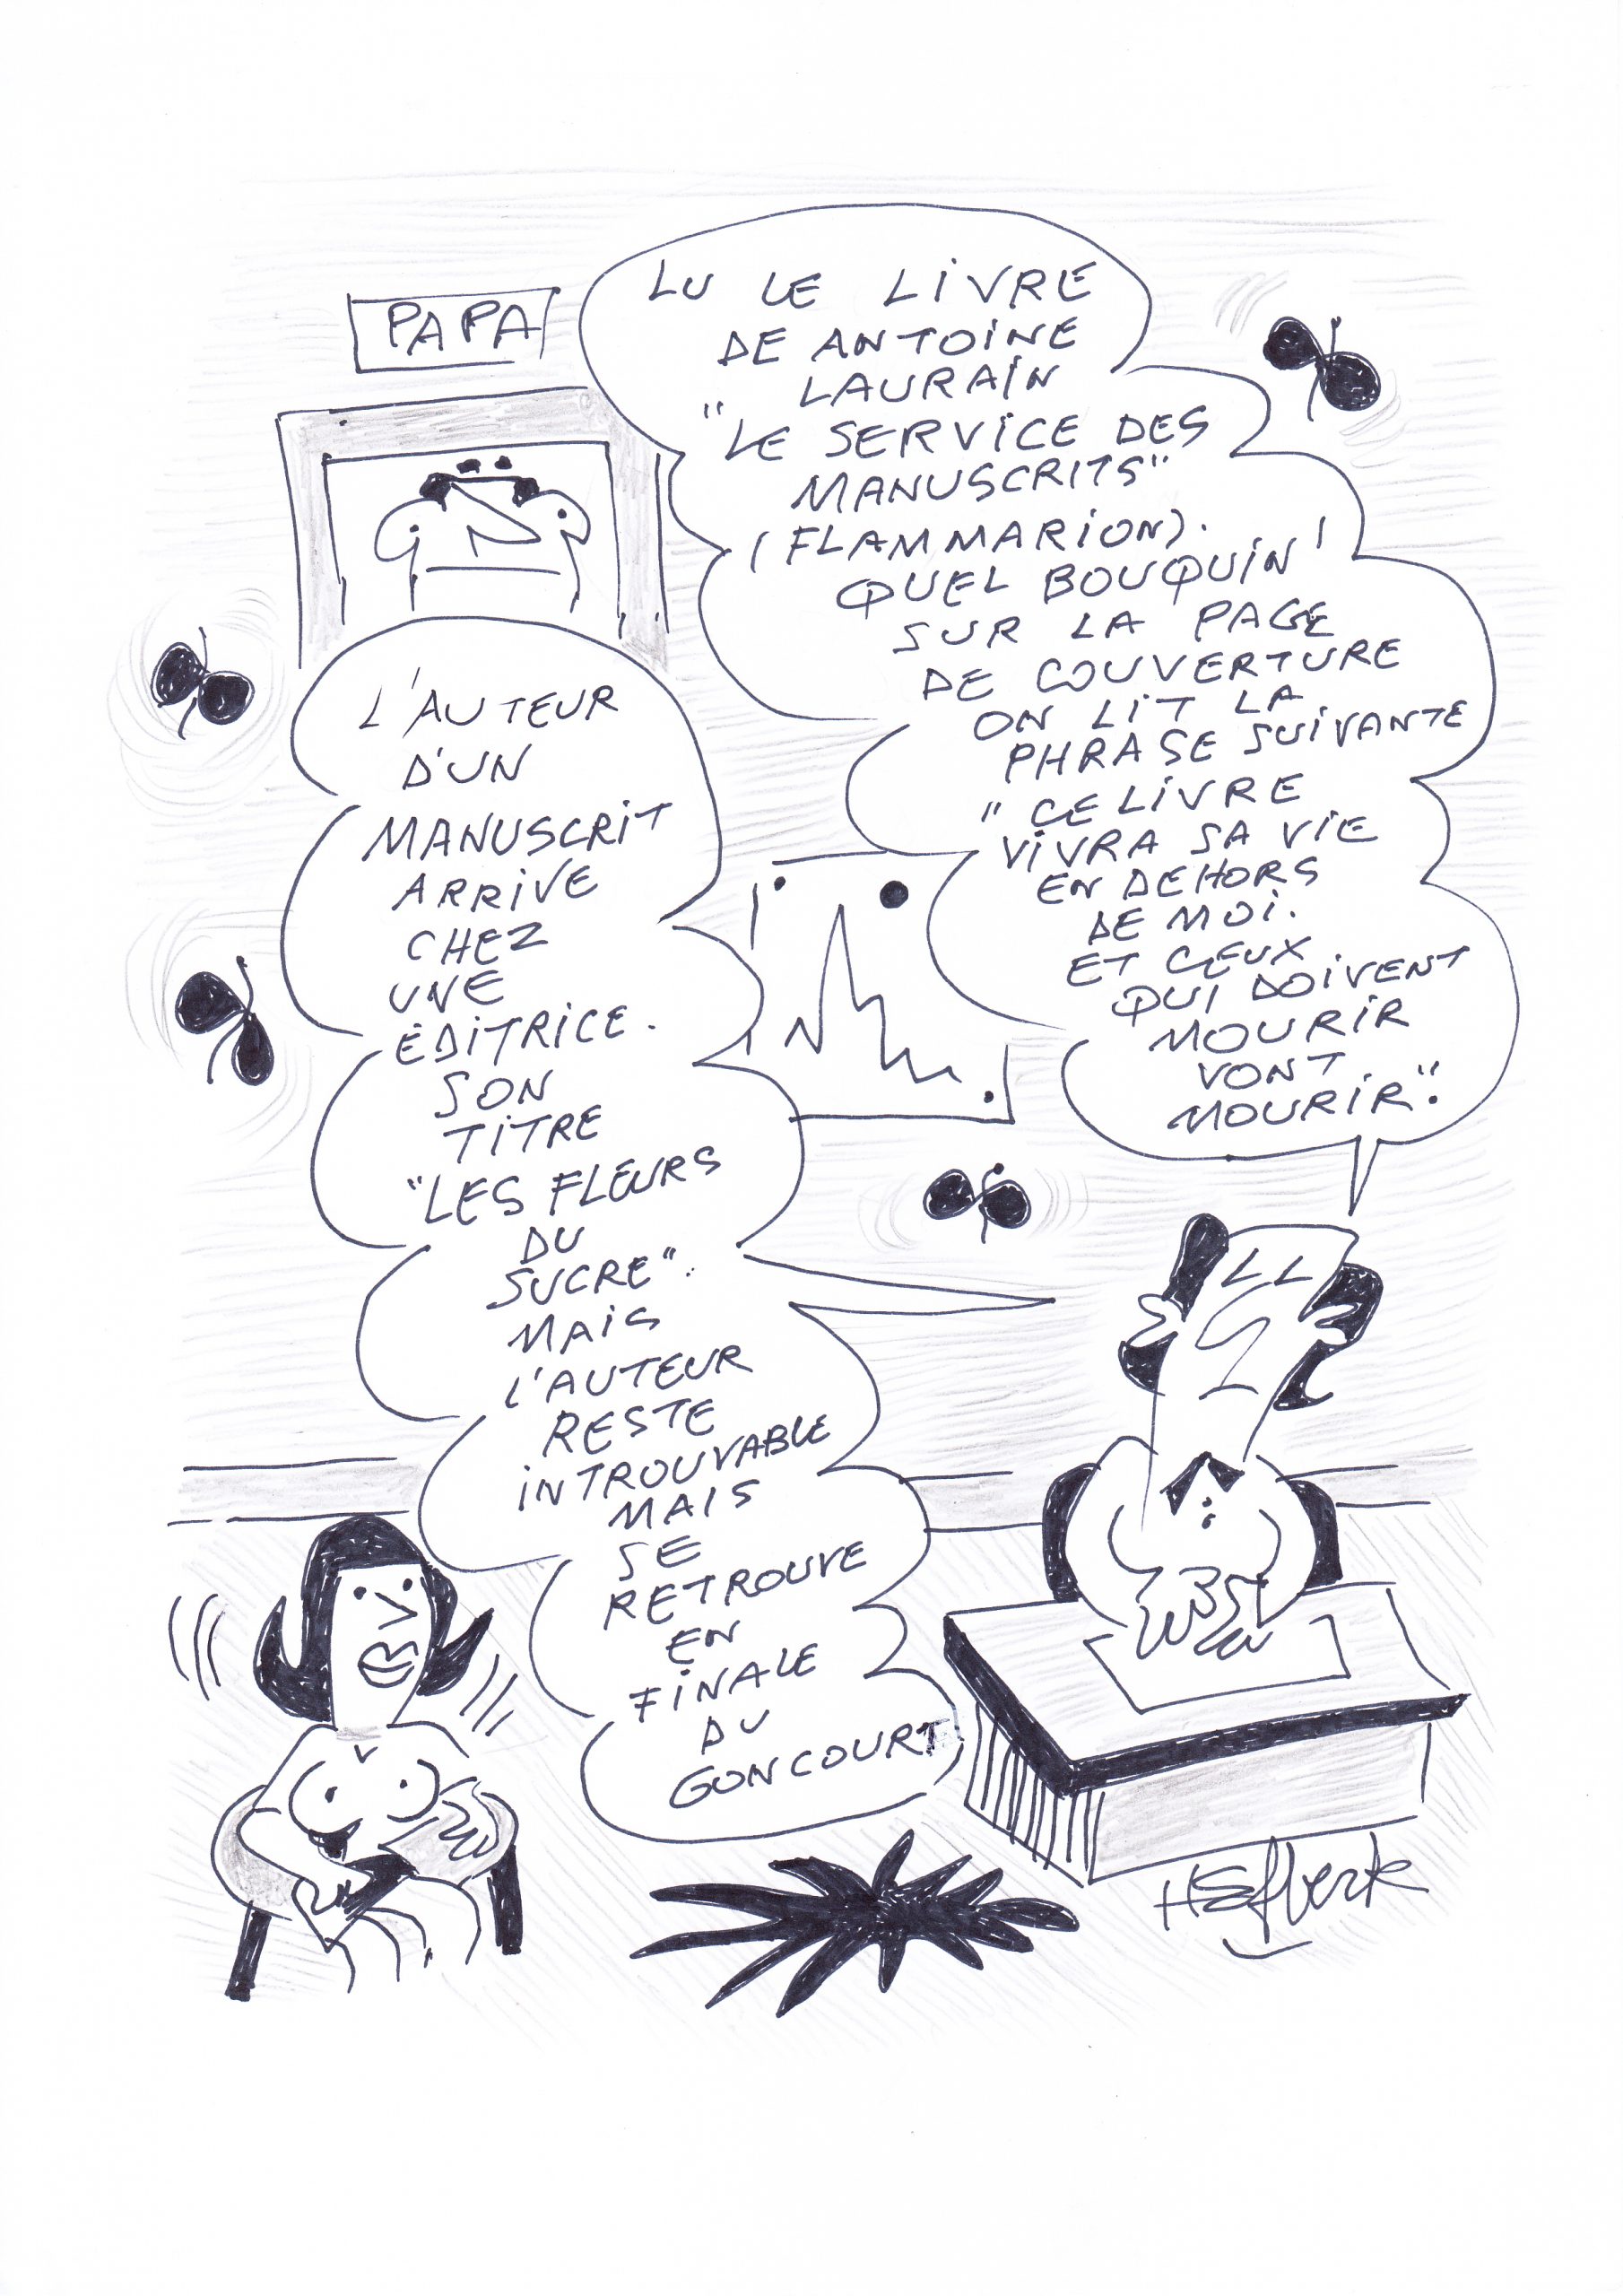 PAPA
LU LE LIVRE
DE ANTOINE
LAURAIN
"LE SERVICE DES
MANUSCRITS"
(FLAMMARION).
QUEL BOUQUIN!
SUR LA PAGE
DE COUVERTURE
ON LIT LA
PHRASE SUIVANTE
"CE LIVRE
VIVRA SA VIE
EN DEHORS
DE MOI.
ET CEUX
QUI DOIVENT
MOURIR
VONT
MOURIR".
L'AUTEUR
D'UN
MANUSCRIT
ARRIVE
CHEZ
UNE
ÉDITRICE.
SON
TITRE
"LES FLEURS
DU
SUCRE".
MAIS
L'AUTEUR
RESTE
INTROUVABLE
MAIS
SE
RETROUVE
EN
FINALE
DU
GONCOURT